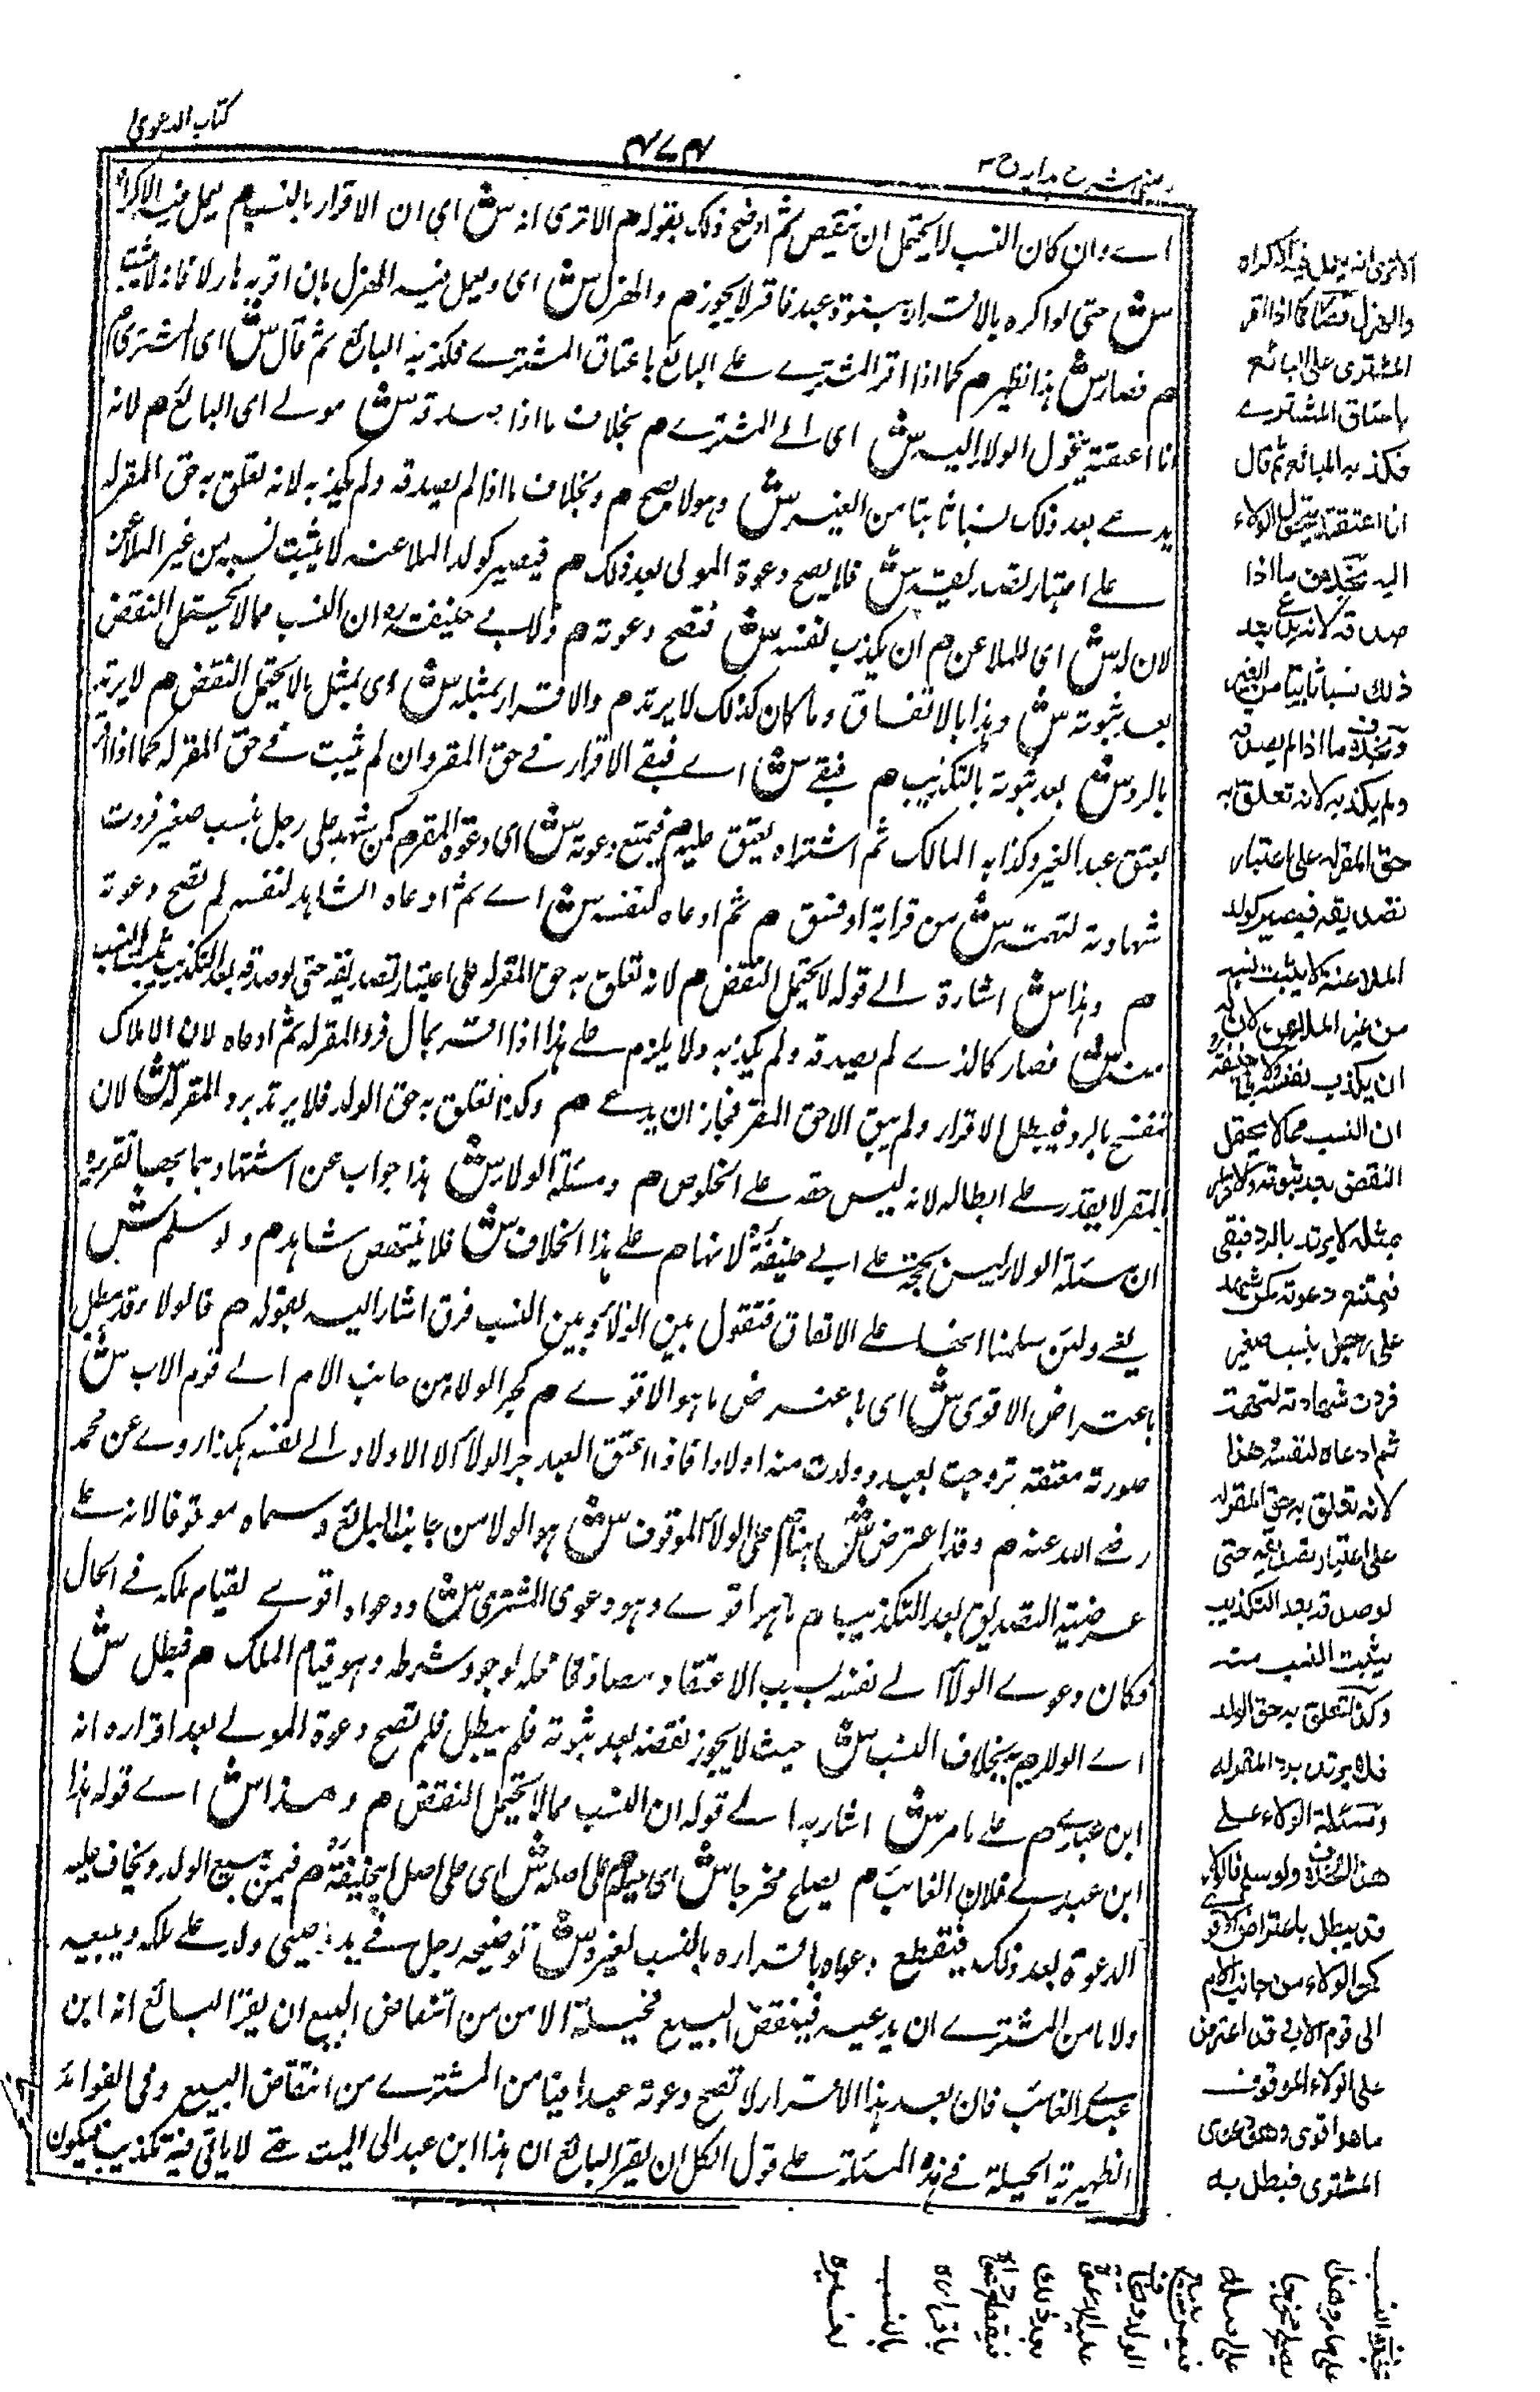 كتاب الدعوى
٤٧٤
عينى شرح هدايه ج٣
اے وان كان النسب لا يحتمل ان ينقيض ثم اوضح ذلك بقوله م الاترى انه ش اى ان الاقرار بالنسب م يعمل فيه الاكراه
ش حتى لو اكره بالاقرار ببنوة عبد فاقر لا يجوز م والهزل ش اى ويعمل فيه الهزل بان اقر به هازلا فانه لا يثبت
م فصار ش هذا نظير م كما اذا اقر المشترے علے البائع باعتاق المشترے فكذبه البائع ثم قال ش اى المشترى م
انا اعتقته يتحول الولاء اليه ش اى الے المشترے م بخلاف ما اذا صدقه ش مولے اى البائع م لانه
يدعے بعد ذلك نسبا ثابتا من الغير ش وهو لا يصح م وبخلاف ما اذا لم يصدقه ولم يكذبه لانه تعلق به حق المقر له
علے اعتبار تصديقه ش فلا يصح دعوة المولى بعد ذلك م فيصير كولد الملاعنه لا يثبت نسبه من غير الملاعن
لان له ش اى للملاعن م ان يكذب نفسه ش فتصح دعوته م ولابے حنيفة ره ان النسب مما لا يحتمل النقض
بعد ثبوته ش وهذا بالاتفاق وما كان كذلك لا يرتد م والاقرار بمثله ش اى بمثل ما لا يحتمل النقض م لا يرتد
بالرد ش بعد ثبوته بالتكذيب م فبقے ش اے فبقے الاقرار فے حق المقر وان لم يثبت فے حق المقر له كما اذا اقر
بعتق عبد الغير وكذبه المالك ثم اشتراه يعتق عليه م فيمتنع دعوته ش اى دعوة المقر م كمن شهد على رجل بنسب صغير فردت
شهادته لتهمة ش من قرابة او فسق م ثم ادعاه لنفسه ش اے ثم ادعاه الشاهد لنفسه لم تصح دعوته
م وهذا ش اشارة الے قوله لا يحتمل النقض م لانه تعلق به حق المقر له على اعتبار تصديقه حتى لو صدقه بعد التكذيب يثبت النسب
منه ش فصار كالذے لم يصدقه ولم يكذبه ولا يلزم علے هذا اذا اقر بمال فرد المقر له ثم ادعاه لان الاملاك
تنفسخ بالرد فيبطل الاقرار ولم يبق الا حق المقر فجاز ان يدعے م وكذا تعلق به حق الولد فلا يرتد برد المقر له ش لان
المقر لا يقدر علے ابطاله لانه ليس حقه علے الخلوص م ومسئلة الولاء ش هذا جواب عن استشهادهما بها تقريره
ان مسئلة الولاء ليس بحجة علے ابے حنيفة ره لانها م علے هذا الخلاف ش فلا ينتهض شاهد م ولو سلم ش
يعنے ولئن سلمنا انها علے الاتفاق فنقول بين الولاء وبين النسب فرق اشار اليه بقوله م فالولاء قد يبطل
باعتراض الاقوى ش اى باعتراض ما هو الاقوے م كجر الولاء من جانب الام الے قوم الاب ش
صورته معتقة تزوجت بعبد وولدت منه اولادا فاذا اعتق العبد جر الولاء الا الاولاد الے نفسه هكذا روے عن محمد
رضے الله عنه م وقد اعترض ش هنا م على الولاء الموقوف ش هو الولاء من جانب البائع وسماه موقوفا لانه علے
عرضية التصديق بعد التكذيب م ما هو اقوے وهو دعوى المشترى ش ودعواه اقوے لقيام ملكه فے الحال
فكان دعوے الولاء الے نفسه بسبب الاعتقاد مصادفا محله لوجود شرطه وهو قيام الملك م فبطل ش
اے الولاء م بخلاف النسب ش حيث لا يجوز نقضه بعد ثبوته فلم يبطل فلم تصح دعوة المولے بعد اقراره انه
ابن عبدے م علے ما مر ش اشار به الے قوله ان النسب مما لا يحتمل النقض م وهذا ش اے قوله هذا
ابن عبدے فلان الغائب م يصلح مخرجا ش اى حيلة م على اصله ش اى على اصل ابيحنيفة ره م فيمن يبيع الولد ويخاف عليه
الدعوة بعد ذلك فيقطع دعواه باقراره بالنسب لغيره ش توضيحه رجل فے يده صبى ولد علے ملكه ويبيعه
ولا يامن المشترے ان يدعيه فينقض البيع فحيلة الامن من انتقاض البيع ان يقر البائع انه ابن
عبدے الغائب فان بعد هذا الاقرار لا تصح دعوته عبدا يامن المشترے من انتقاض البيع وفى الفوائد
الظهيرية الحيلة فے هذه المسئلة علے قول الكل ان يقر البائع ان هذا ابن عبد الى الميت حتے لا ياتى فيه تكذيب فيكون
الاترى انه يعمل فيه الاكراه
والهزل فصار كما اذا اقر
المشترى على البائع
باعتاق المشترے
فكذبه البائع ثم قال
انا اعتقته يتحول الولاء
اليه بخلاف ما اذا
صدقه لانه يدعى بعد
ذلك نسبا ثابتا من الغير
وبخلاف ما اذا لم يصدقه
ولم يكذبه لانه تعلق به
حق المقر له على اعتبار
تصديقه فيصير كولد
الملاعنة لا يثبت نسبه
من غير الملاعن لان له
ان يكذب نفسه ولابى حنيفة ره
ان النسب مما لا يحتمل
النقض بعد ثبوته والاقرار
بمثله لا يرتد بالرد فبقى
فيمتنع دعوته كمن شهد
على رجل بنسب صغير
فردت شهادته لتهمة
ثم ادعاه لنفسه وهذا
لانه تعلق به حق المقر له
على اعتبار تصديقه حتى
لو صدقه بعد التكذيب
يثبت النسب منه
وكذا تعلق به حق الولد
فلا يرتد برد المقر له
ومسئلة الولاء على
هذا الخلاف ولو سلم فالولاء
قد يبطل باعتراض الاقوى
كجر الولاء من جانب الام
الى قوم الاب وقد اعترض
على الولاء الموقوف
ما هو اقوى وهو دعوى
المشترى فبطل به
بخلاف النسب
على ما مر وهذا
يصلح مخرجا
على اصله
فيمن يبيع
الولد ويخاف
عليه الدعوة
بعد ذلك
فيقطع دعواه
باقراره
بالنسب
لغيره